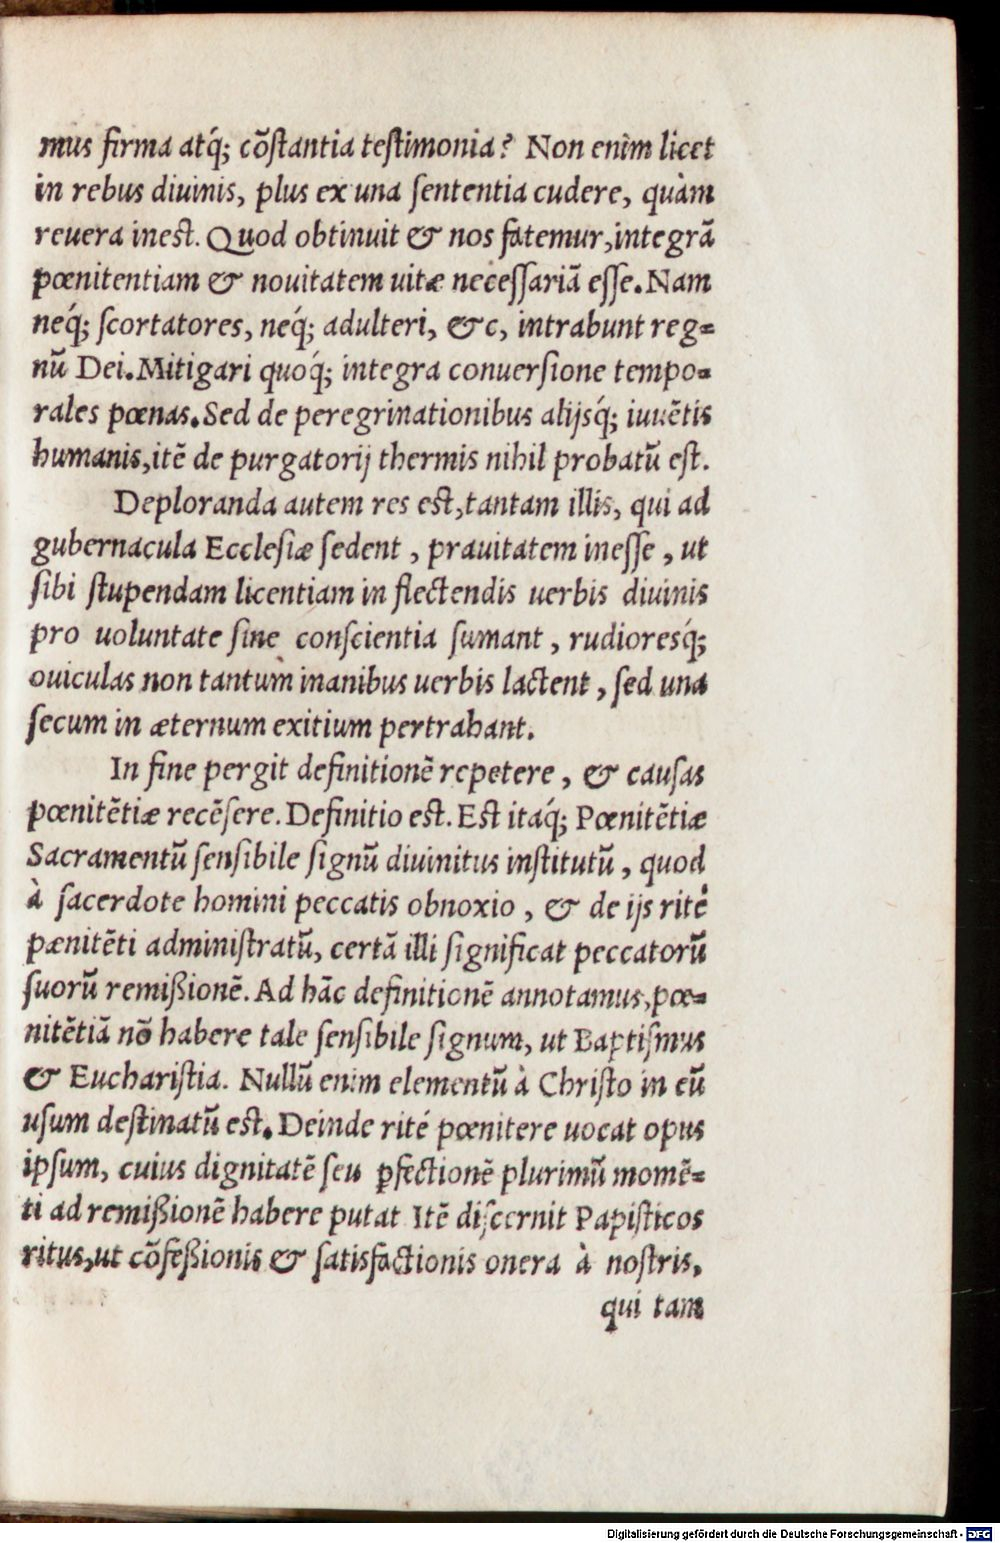 mus firma atq́; cõſtantia teſtimonia? Non enim licet
in rebus diuinis, plus ex una ſententia cudere, quàm
reuera ineſt. Quod obtinuit & nos fatemur, integrã
pœnitentiam & nouitatem uitæ neceſſariã eſſe. Nam
neq́; ſcortatores, neq́; adulteri, &c, intrabunt reg=
nũ Dei. Mitigari quoq́; integra conuerſione tempo=
rales pœnas. Sed de peregrinationibus alijsq́; iuuẽtis
humanis, itẽ de purgatorij thermis nihil probatũ eſt.
Deploranda autem res eſt, tantam illis, qui ad
gubernacula Eccleſiæ ſedent, prauitatem ineſſe, ut
ſibi ſtupendam licentiam in flectendis uerbis diuinis
pro uoluntate ſine conſcientia ſumant, rudioresq́;
ouiculas non tantum inanibus uerbis lactent, ſed una
ſecum in æternum exitium pertrahant.
In fine pergit definitionẽ repetere, & cauſas
pœnitẽtiæ recẽſere. Definitio eſt. Eſt itaq́; Pœnitẽtiæ
Sacramentũ ſenſibile ſignũ diuinitus inſtitutũ, quod
à ſacerdote homini peccatis obnoxio, & de ijs ritè
pænitẽti adminiſtratũ, certã illi ſignificat peccatorũ
ſuorũ remiſsionẽ. Ad hãc definitionẽ annotamus, pœ=
nitẽtiã nõ habere tale ſenſibile ſignum, ut Baptiſmus
& Euchariſtia. Nullũ enim elementũ à Chriſto in eũ
uſum deſtinatũ eſt. Deinde rité pœnitere uocat opus
ipſum, cuius dignitatẽ ſeu ꝑfectionẽ plurimũ momẽ=
ti ad remiſsionẽ habere putat Itẽ diſcernit Papiſticos
ritus, ut cõfeſsionis & ſatisfactionis onera à noſtris,
qui tam
Digitalisierung gefördert durch die Deutsche Forschungsgemeinschaft - DFG